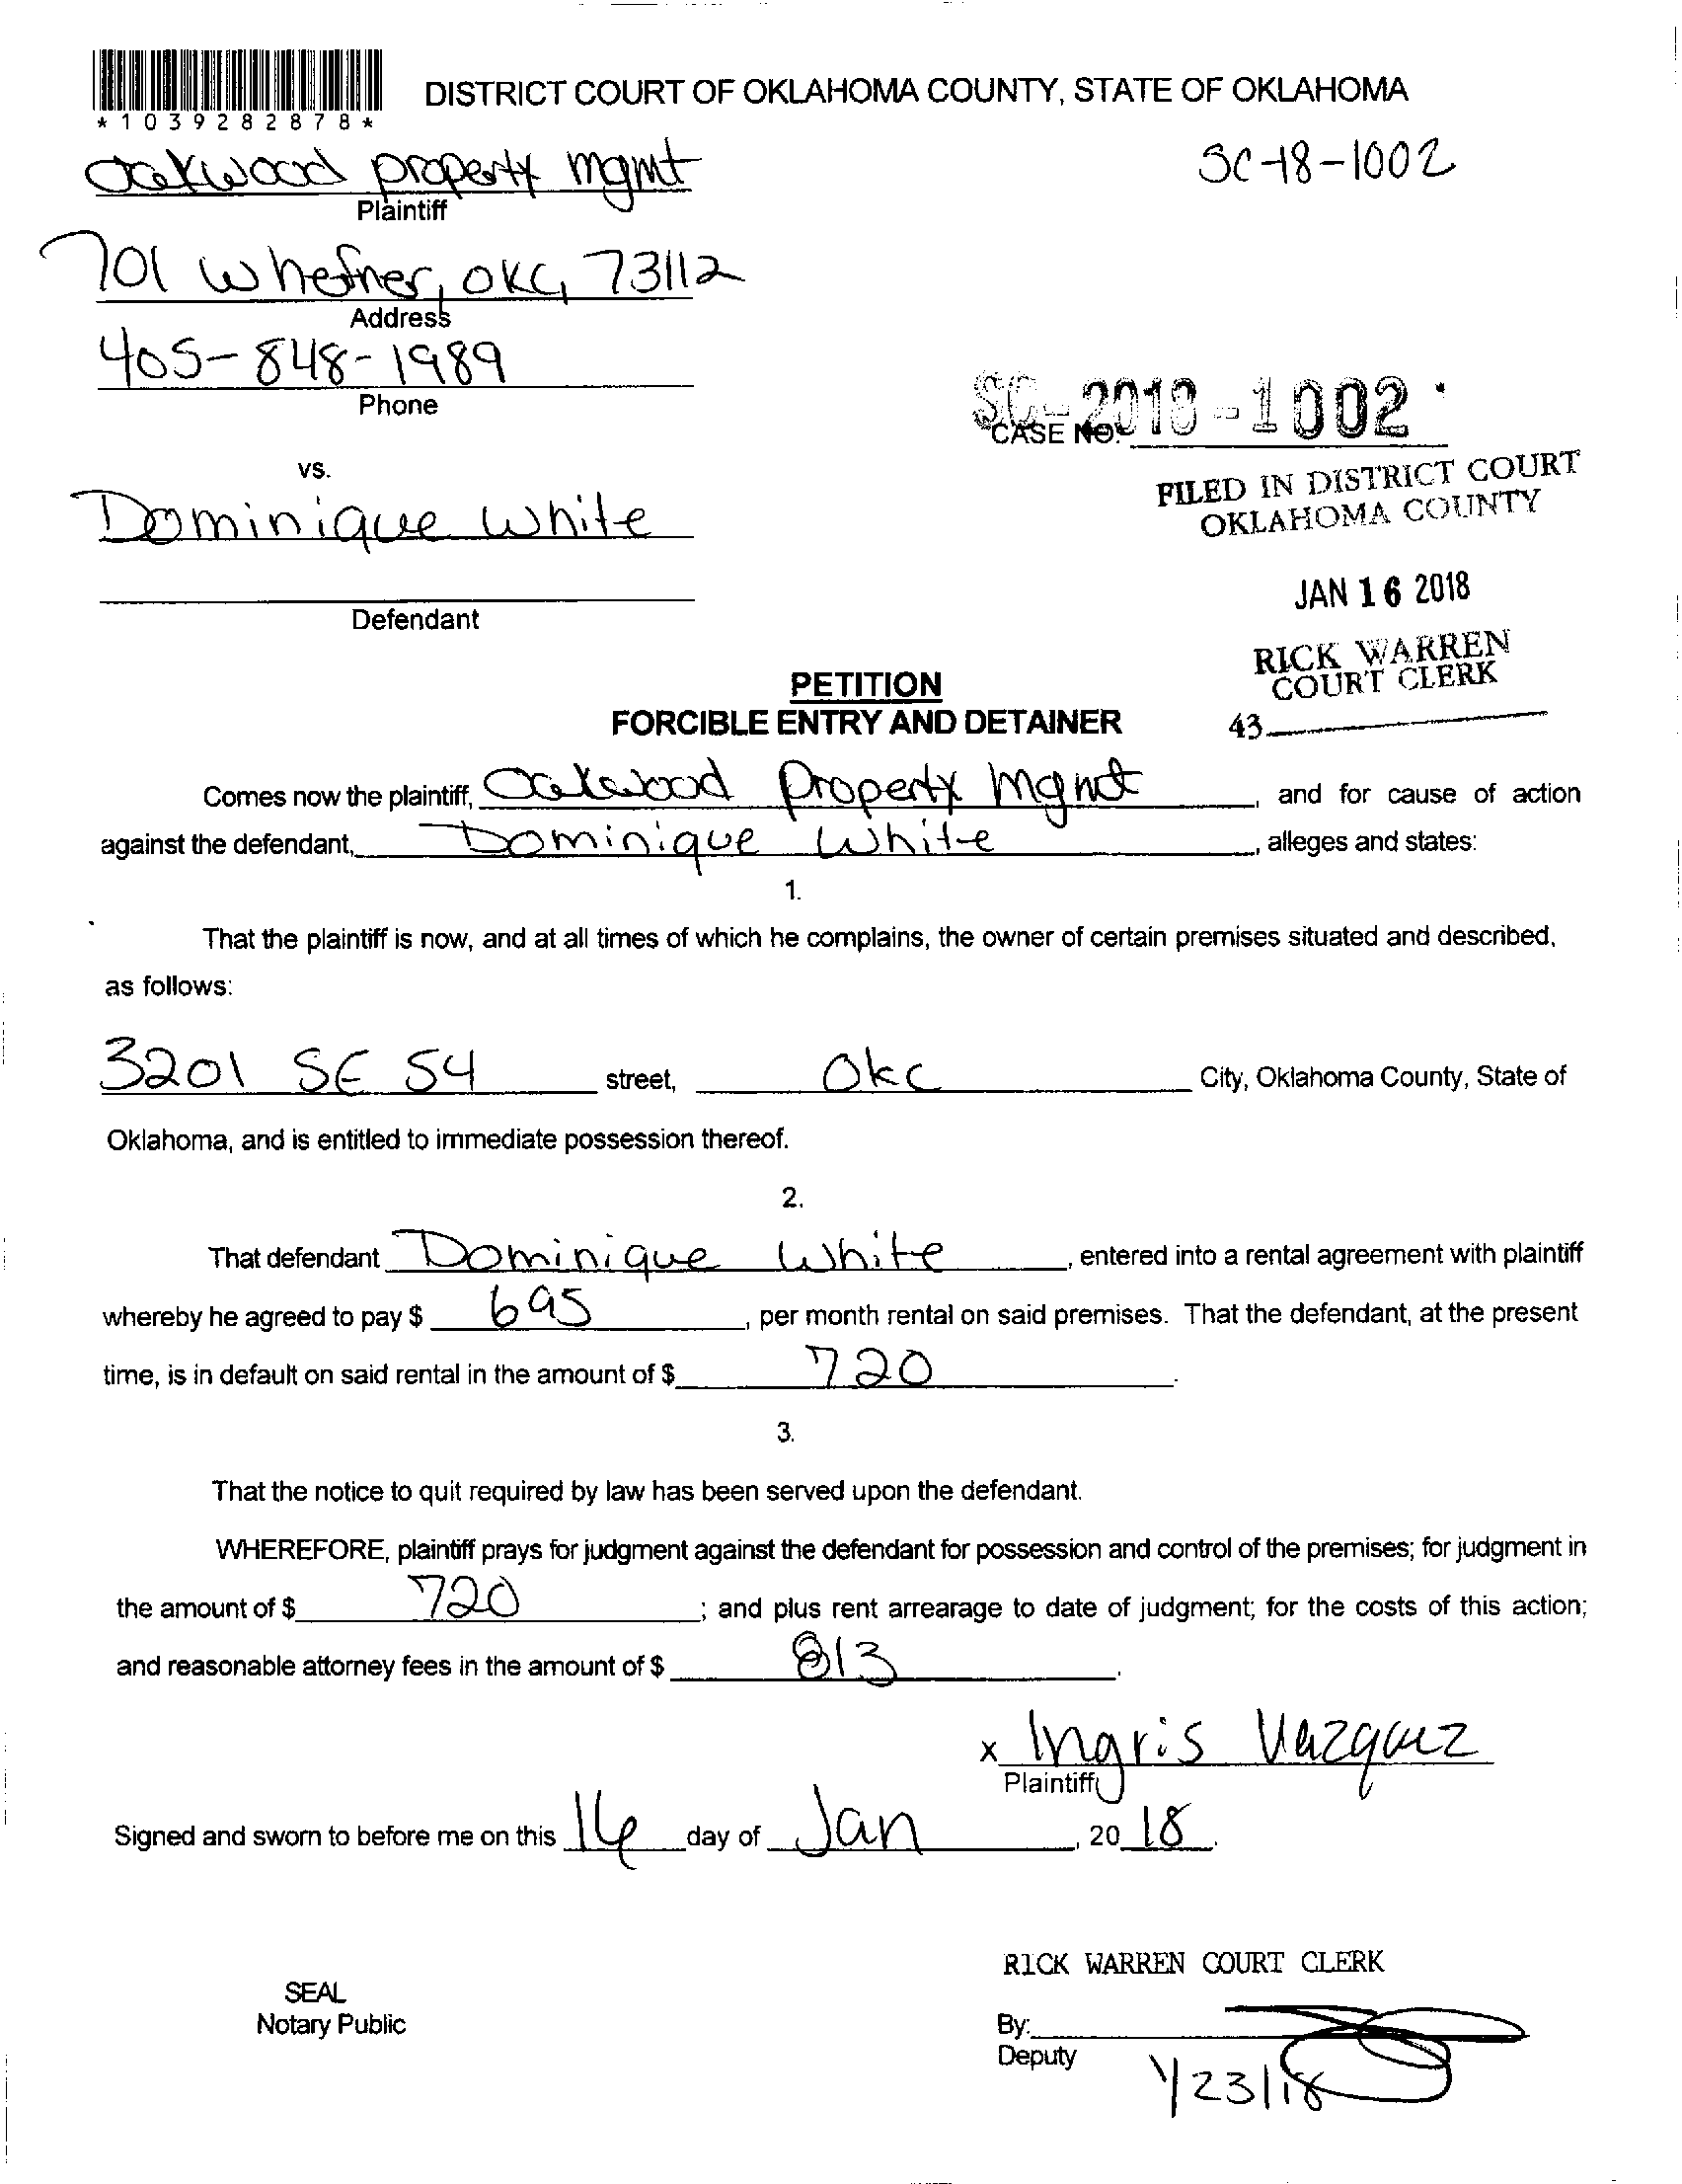 DISTRICT COURT OF OKLAHOMA COUNTY, STATE OF OKLAHOMA
*1039282878*
Oakwood property mgmt
SC-18-1002
Plaintiff
701 W hefner, OKC, 73112
Address
405-848-1989
Phone
SC-2018-1002
CASE NO.
vs.
FILED IN DISTRICT COURT
OKLAHOMA COUNTY
Dominique White
JAN 16 2018
Defendant
RICK WARREN
COURT CLERK
PETITION
FORCIBLE ENTRY AND DETAINER
43
Comes now the plaintiff, Oakwood Property Mgmt, and for cause of action
against the defendant, Dominique White, alleges and states:
1.
That the plaintiff is now, and at all times of which he complains, the owner of certain premises situated and described,
as follows:
3201 SE 54 street, OKC City, Oklahoma County, State of
Oklahoma, and is entitled to immediate possession thereof.
2.
That defendant Dominique White, entered into a rental agreement with plaintiff
whereby he agreed to pay $ 695, per month rental on said premises. That the defendant, at the present
time, is in default on said rental in the amount of $ 720.
3.
That the notice to quit required by law has been served upon the defendant.
WHEREFORE, plaintiff prays for judgment against the defendant for possession and control of the premises; for judgment in
the amount of $ 720; and plus rent arrearage to date of judgment; for the costs of this action;
and reasonable attorney fees in the amount of $ 813.
x Ingris Vazquez
Plaintiff
Signed and sworn to before me on this 16 day of Jan, 20 18.
RICK WARREN COURT CLERK
SEAL
Notary Public
By:
Deputy
1/23/18